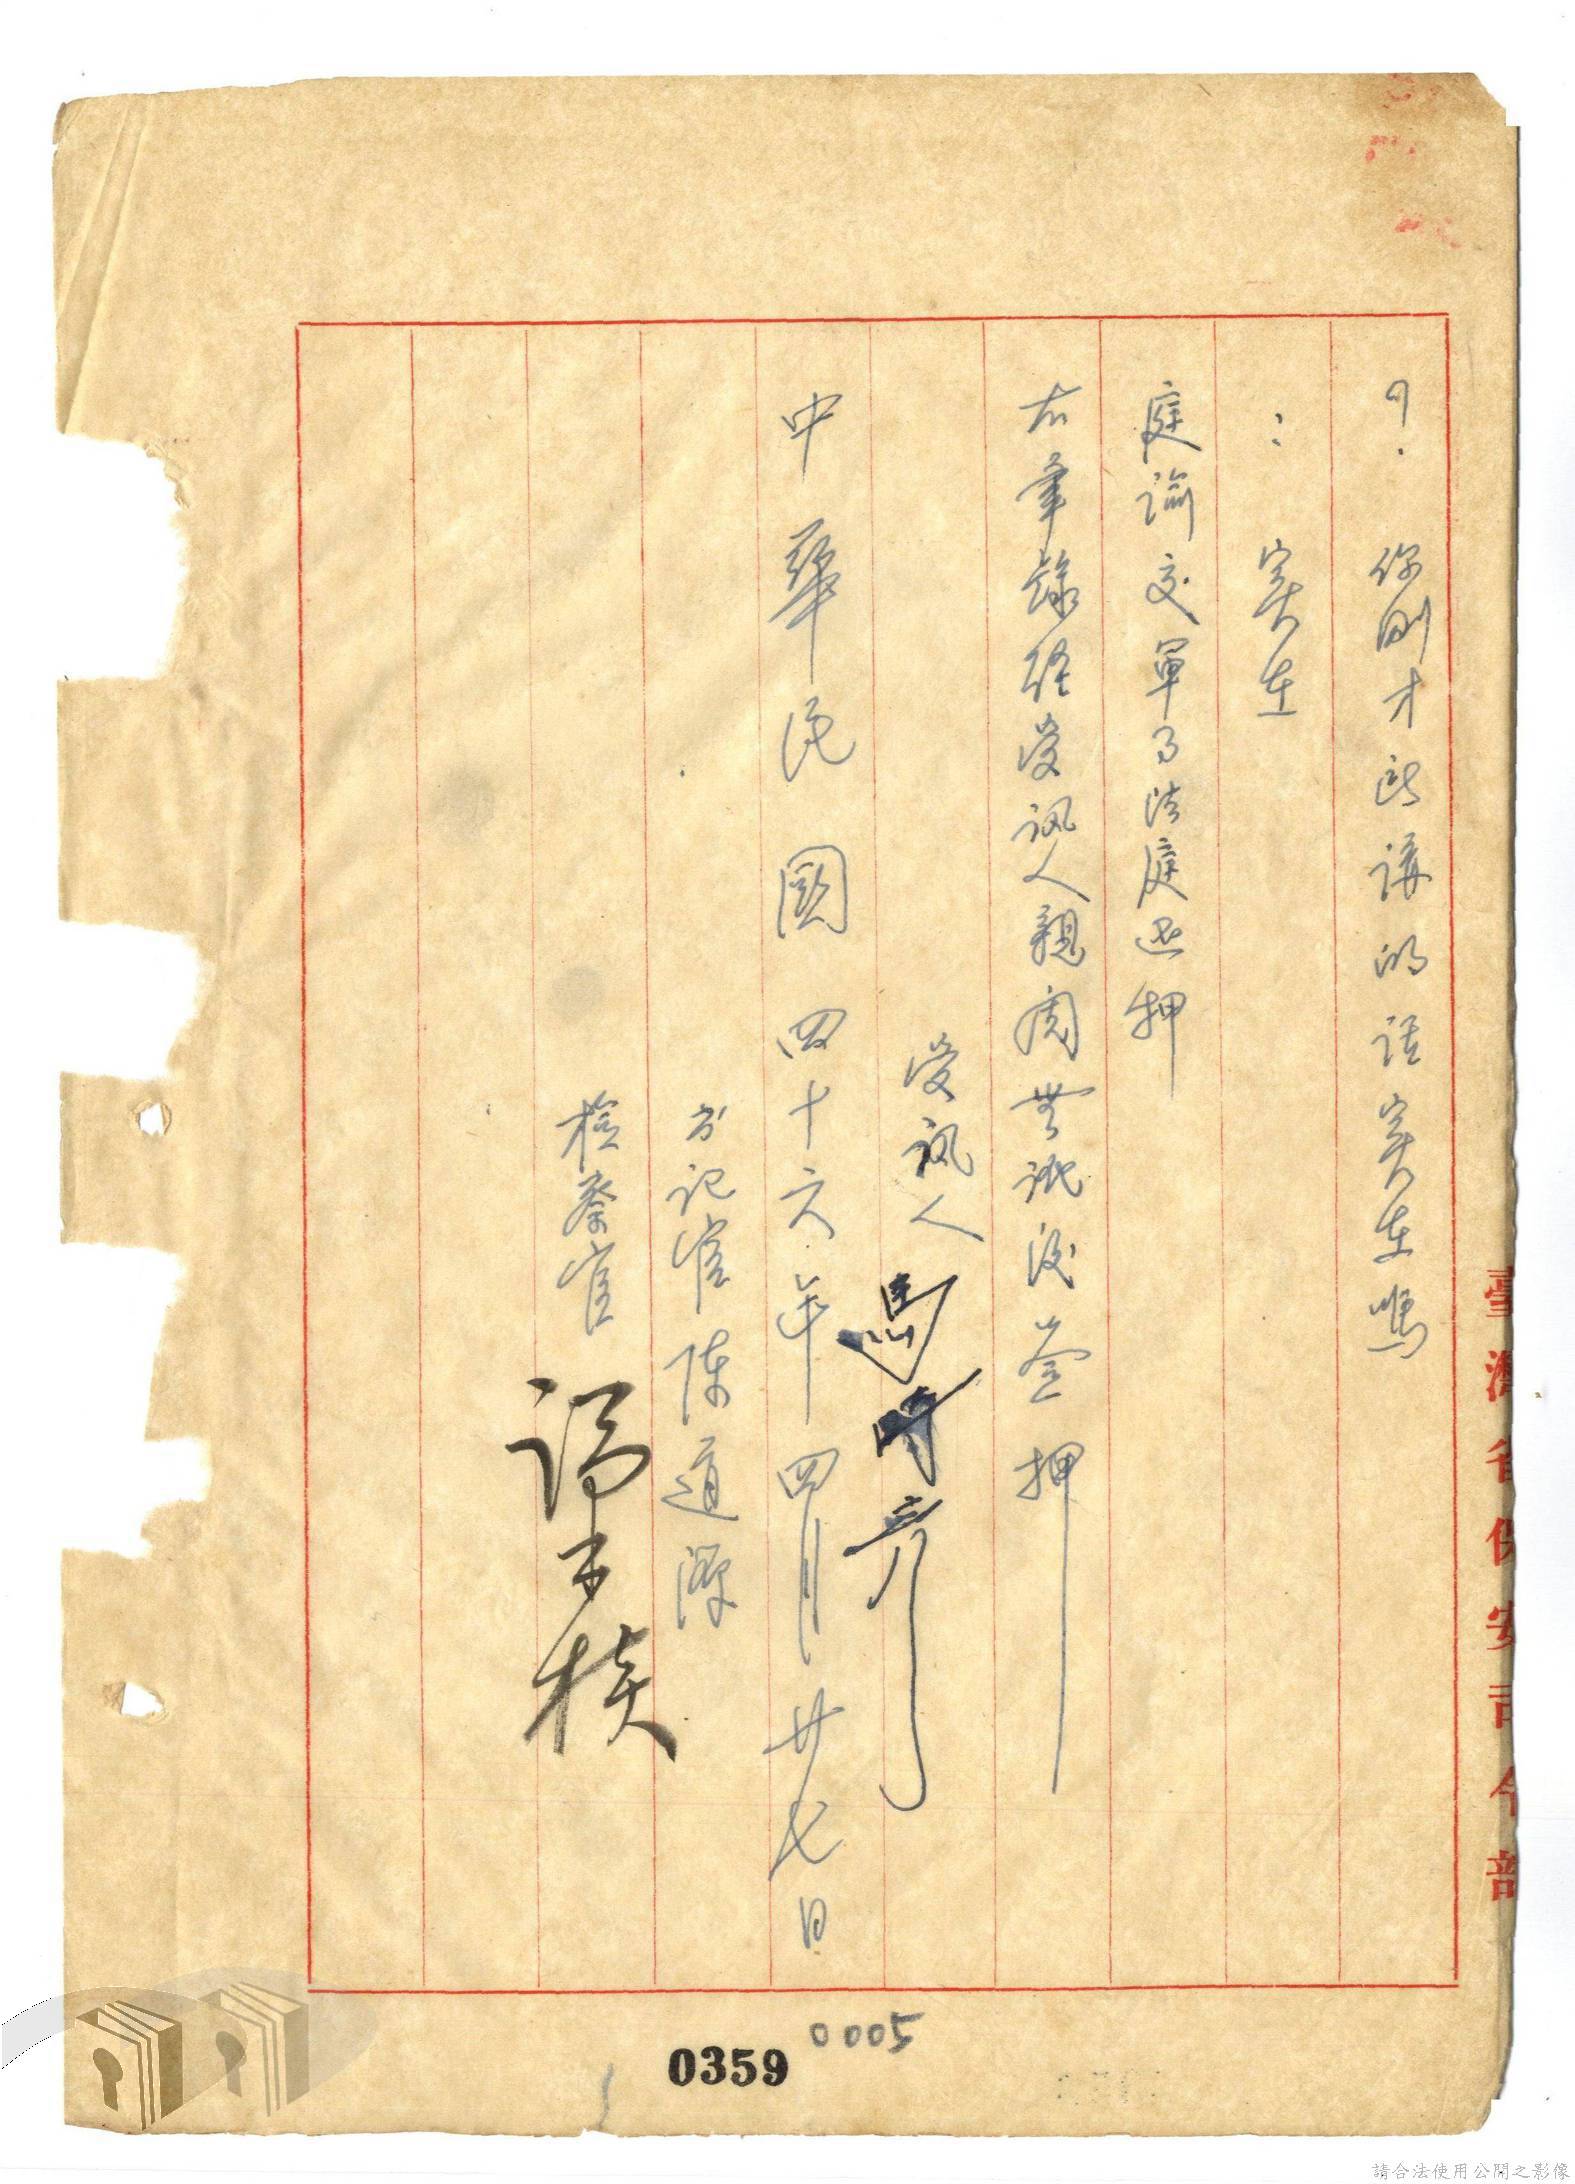 ？．你剛才所講的話实在嗎
：实在
庭諭交軍事法庭还押
右筆錄經受訊人親閱無訛後簽押
受訊人 馬時彥
中華民國四十六年四月廿七日
书记官陳道源
檢察官
臺灣省保安司令部
0005
0359
請合法使用公開之影像